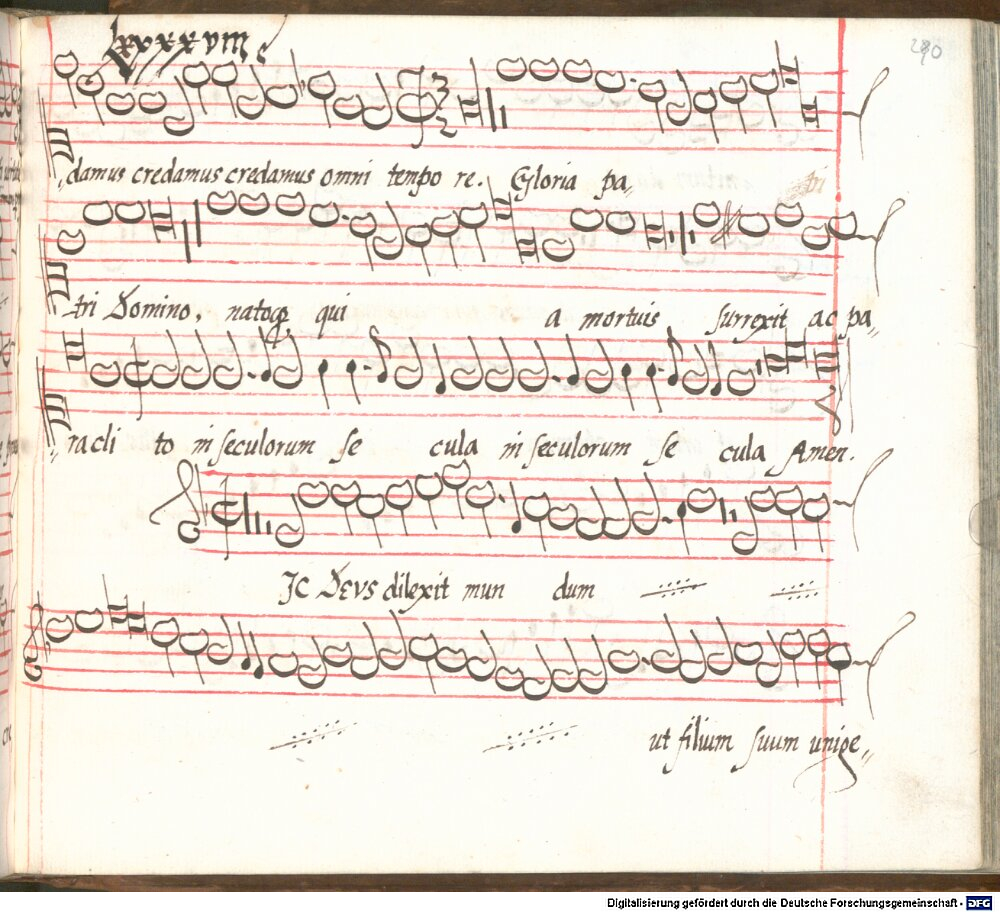 lxxxxviii
290
„damus credamus credamus omni tempo re. Gloria pa„ tri
tri Domino, natoq3 qui a mortuis surrexit ac pa„
„racli to in seculorum se cula in seculorum se cula Amen.
IC DEVS dilexit mun dum
ut filium suum unige„
Digitalisierung gefördert durch die Deutsche Forschungsgemeinschaft - DFG